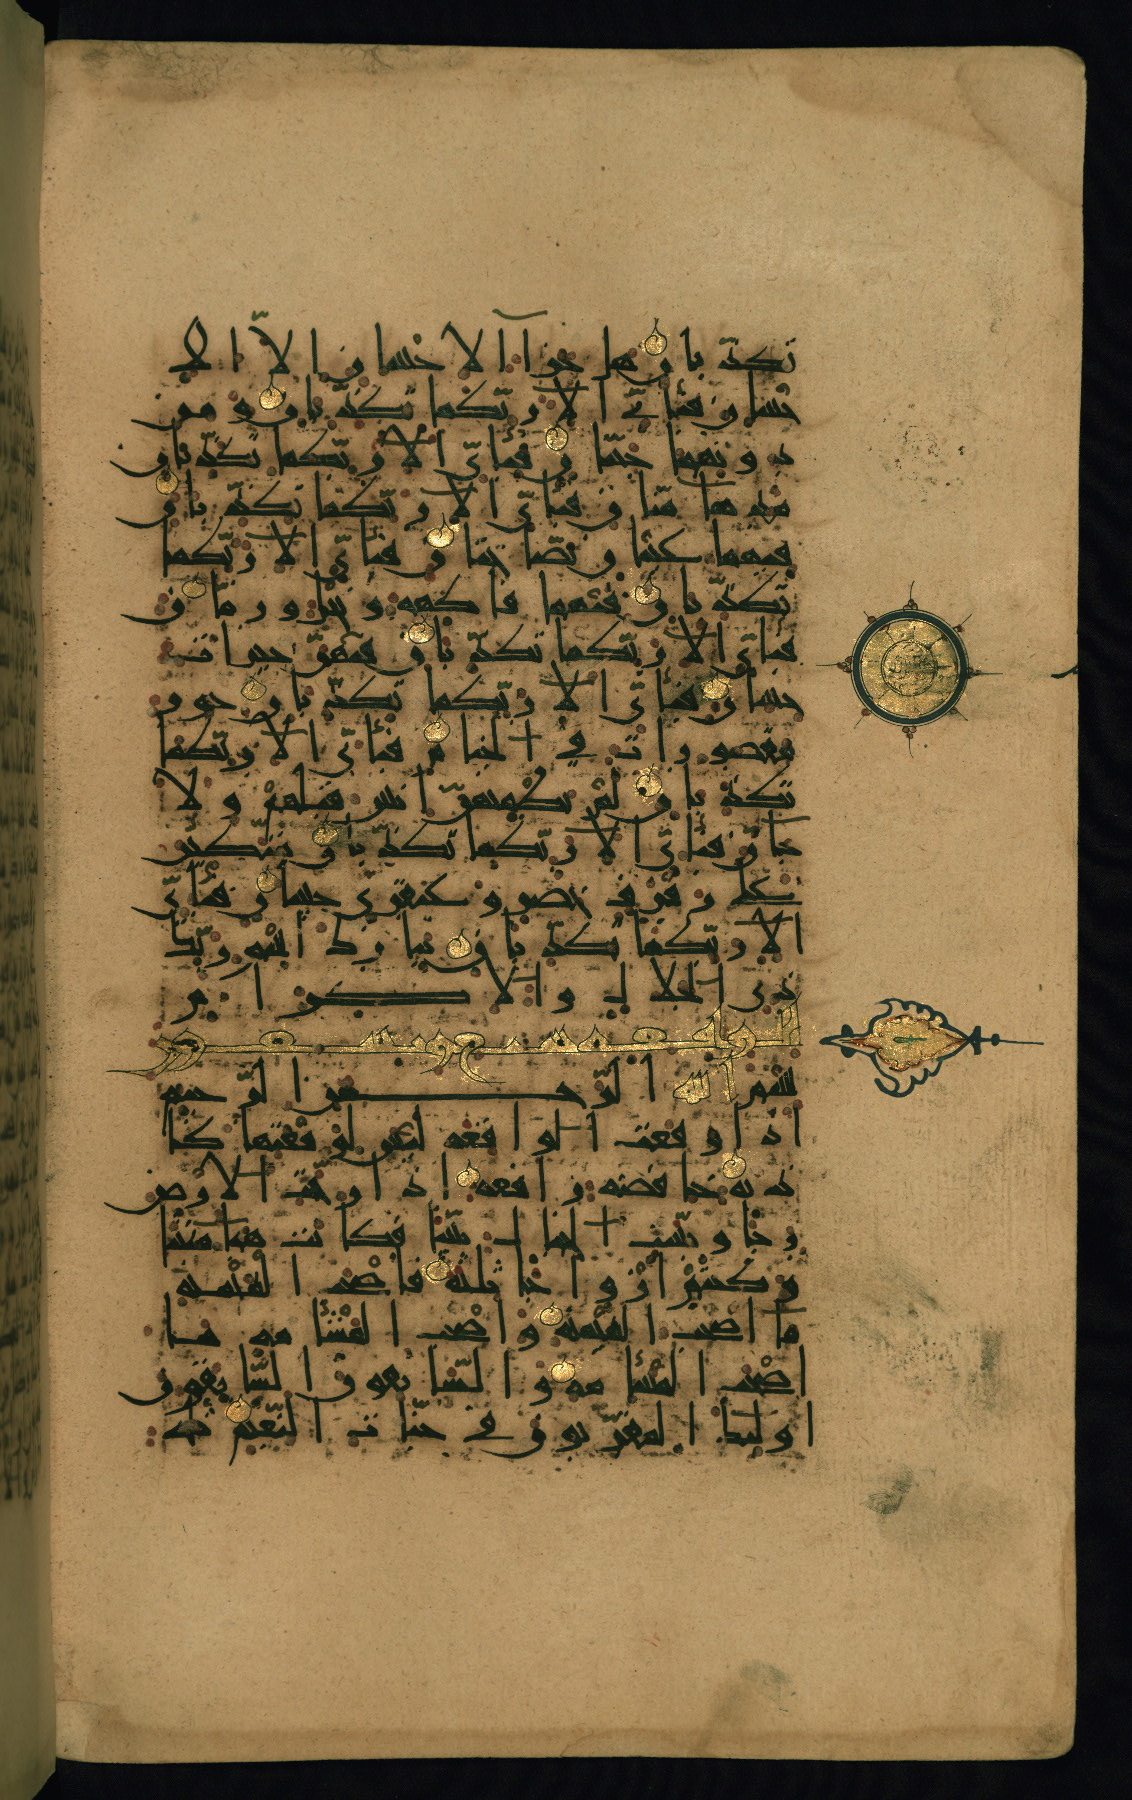 تكذبان هل جزا الاحسان الا الا
حسان فباي الا ربكما تكذبان ومن
دونهما جنتان فباي الا ربكما تكذبان
مدهامتان فباي الا ربكما تكذبان
فيهما عينان نضاختان فباي الا ربكما
تكذبان فيهما فاكهه ونخل ورمان
فباي الا ربكما تكذبان فيهن خيرات
حسان فباي الا ربكما تكذبان حور
مقصورات في الخيام فباي الا ربكما
تكذبان لم يطمثهن انس قبلهم ولا
جان فباي الا ربكما تكذبان متكئين
على رفرف خضر وعبقري حسان فباي
الا ربكما تكذبان تبارك اسم ربك
ذي الجلال والاكرام
الواقعة تسعون وست
بسم الله الرحمن الرحيم
اذا وقعت الواقعه ليس لوقعتها كا
ذبه خافضه رافعه اذا رجت الارض
رجا وبست الجبال بسا فكانت هبا منبثا
وكنتم ازواجا ثلثه فاصحب الميمنه
ما اصحب الميمنه واصحب المشئمه ما
اصحب المشئمه والسابقون السابقون
اوليك المقربون في جنات النعيم ثله